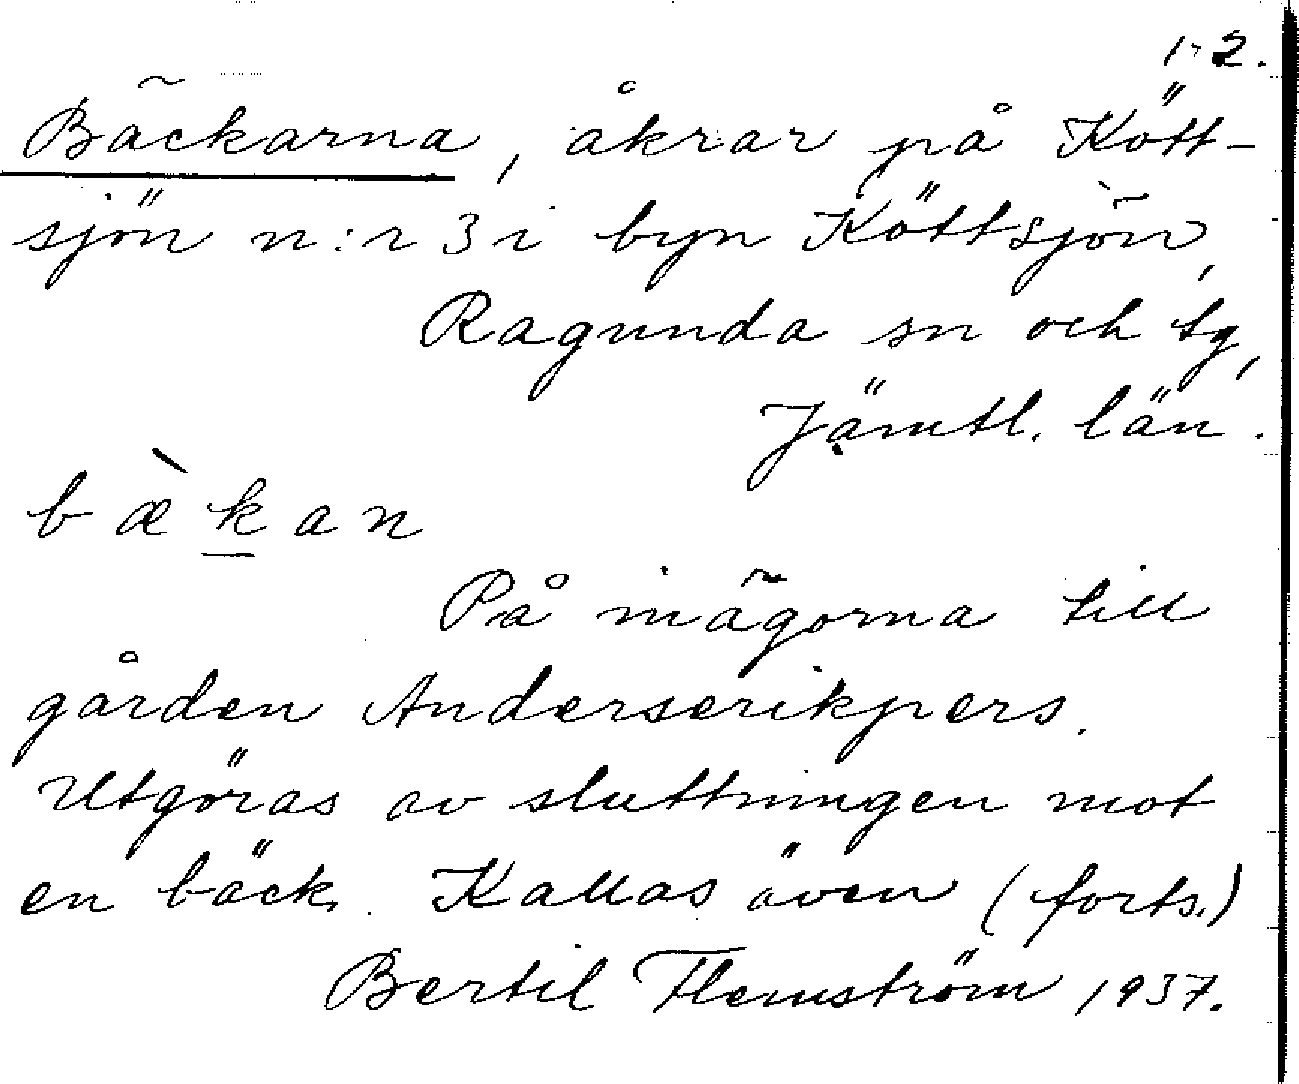 1-2.
Bäckarna, åkrar på Kött-
sjön n:r 3 i byn Köttsjön,
Ragunda sn och tg,
Jämtl. län.
bæ̀kan
På inägorna till
gården Anderserikpers.
Utgöras av sluttningen mot
en bäck. Kallas även (forts.)
Bertil Flemström 1937.